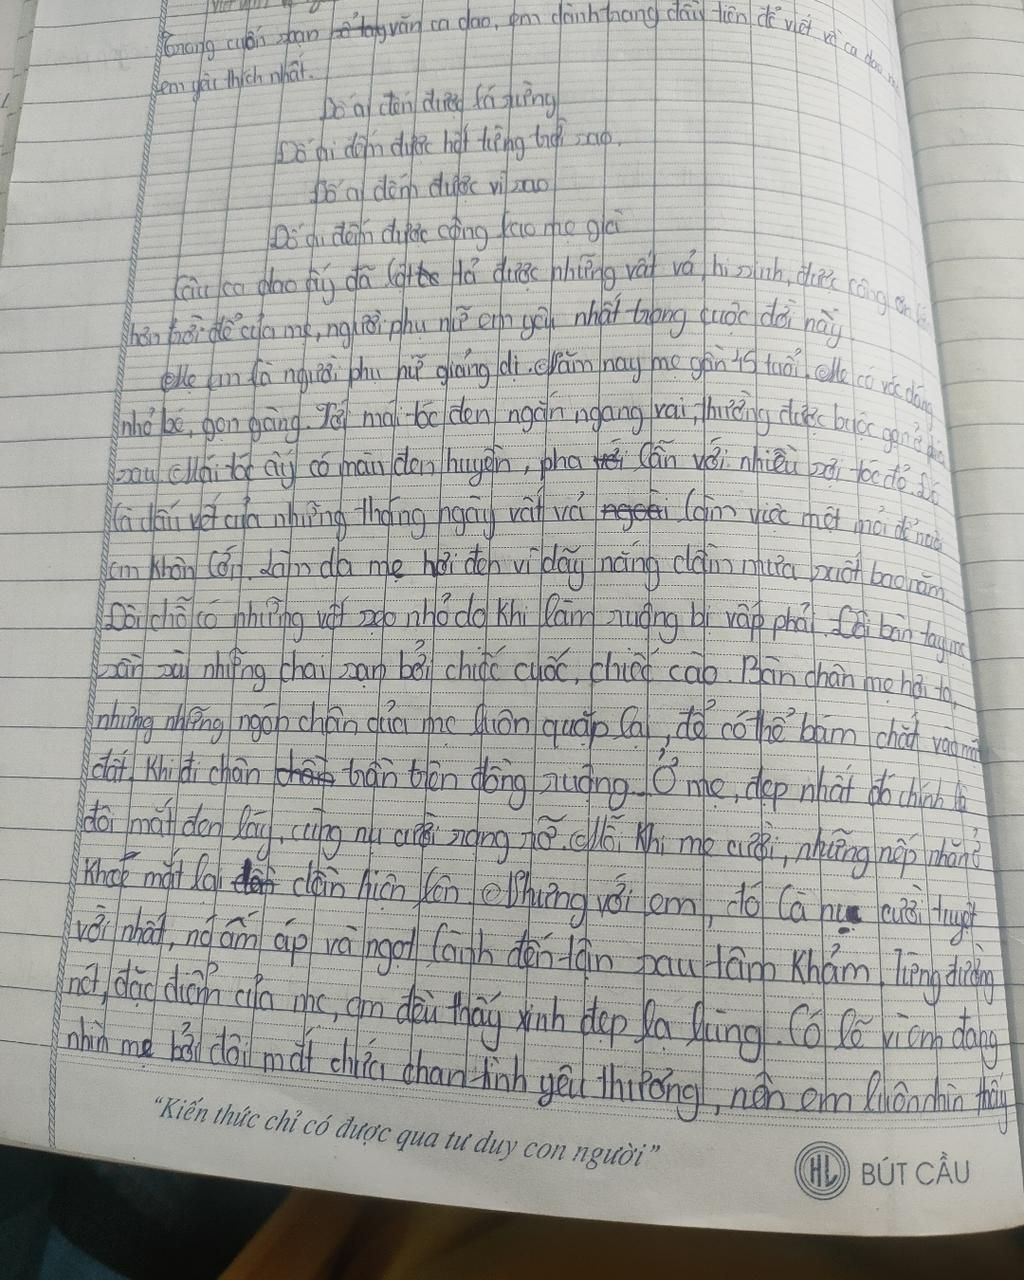 Trong cuốn sạn sổ tay văn ca dao, em dành trang đầu tiên để viết về ca dao mà
em yêu thích nhất.
Đố ai đếm được lá rừng
Đố ai đếm được hột tiếng trời sao.
Đố ai đếm được vì sao
Đố ai đếm được công lao mẹ già
Câu ca dao ấy đã lột tả được những vất vả, hi sinh, được công ơn
hơn trời bể của mẹ, người phụ nữ em yêu nhất trong cuộc đời này
Mẹ em là người phụ nữ giảng dị. Năm nay mẹ gần 45 tuổi. Mẹ có vóc dáng
nhỏ bé, gọn gàng. Tới mái tóc đen ngắn ngang vai, thường được buộc gọn ở phía
sau. Mái tóc ấy có màu đen huyền, pha lẫn với nhiều sợi tóc đỏ. Đó
là dấu vết của những tháng ngày vất vả làm việc mệt mỏi để nuôi
em khôn lớn. Làn da mẹ hơi đen vì dãy nắng dầm mưa suốt bao năm.
Đôi chỗ có những vết sẹo nhỏ do khi làm ruộng bị vấp phải. Đôi bàn tay mẹ
sần sùi những chai sạn bởi chiếc cuốc, chiếc cào. Bàn chân mẹ hơi to,
nhưng những ngón chân của mẹ luôn quặp lại, để có thể bám chắt vào mặt
đất, khi đi chân trần trên đồng ruộng. Ở mẹ, đẹp nhất đó chính là
đôi mắt đen láy, cùng nụ cười rạng rỡ. Mỗi khi mẹ cười, những nếp nhăn ở
khoé mắt lại dần hiện lên. Nhưng với em, đó là nụ cười tuyệt
vời nhất, nó ấm áp và ngọt lành đến tận sau tâm khảm. Từng đường
nét, đặc điểm của mẹ, em đều thấy xinh đẹp lạ lùng. Có lẽ vì em đang
nhìn mẹ bởi đôi mắt chứa chan tình yêu thương, nên em luôn nhìn thấy
"Kiến thức chỉ có được qua tư duy con người"
HL BÚT CẦU